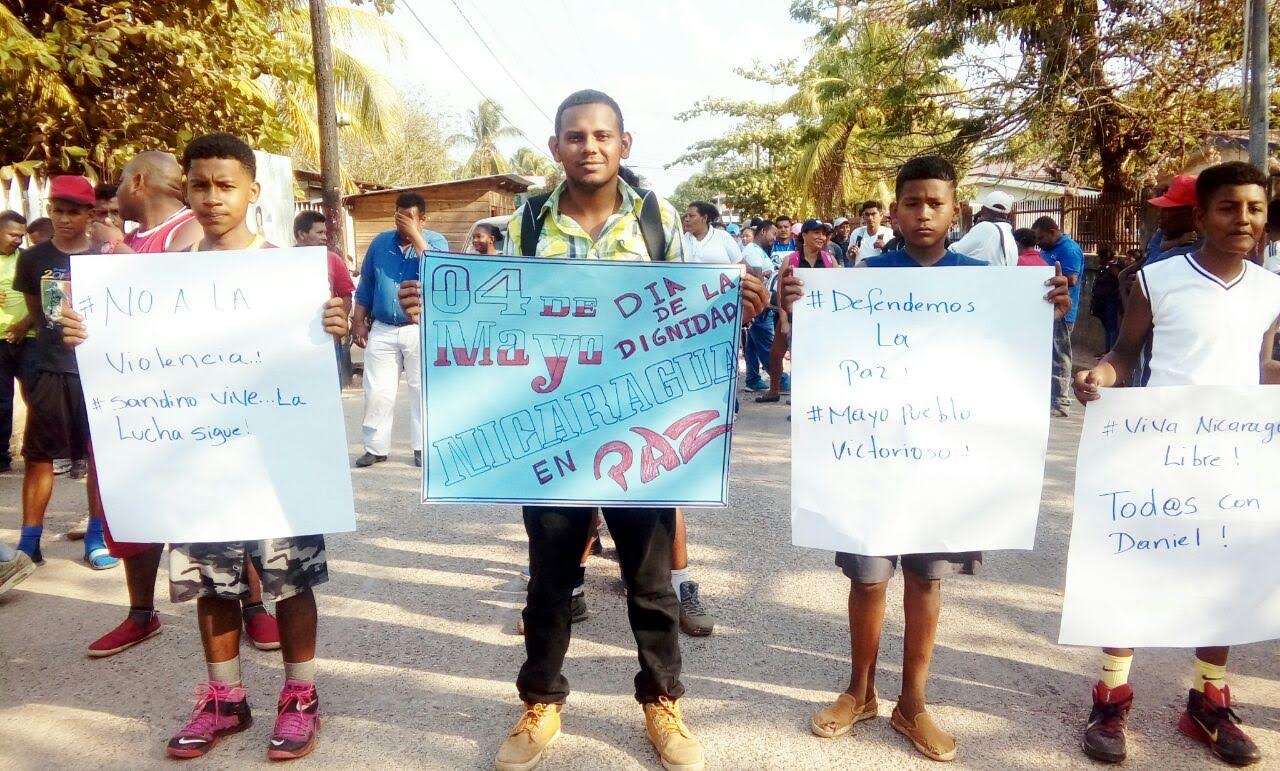 #NO A LA
Violencia..!
#Sandino Vive...La
Lucha sigue!
04 DE
Mayo
DIA
DE LA
DIGNIDAD
NICARAGUA
EN PAZ
#Defendemos
La
Paz!
#Mayo Pueblo
Victorioso..!
#Viva Nicarag
Libre!
Tod@s con
Daniel!